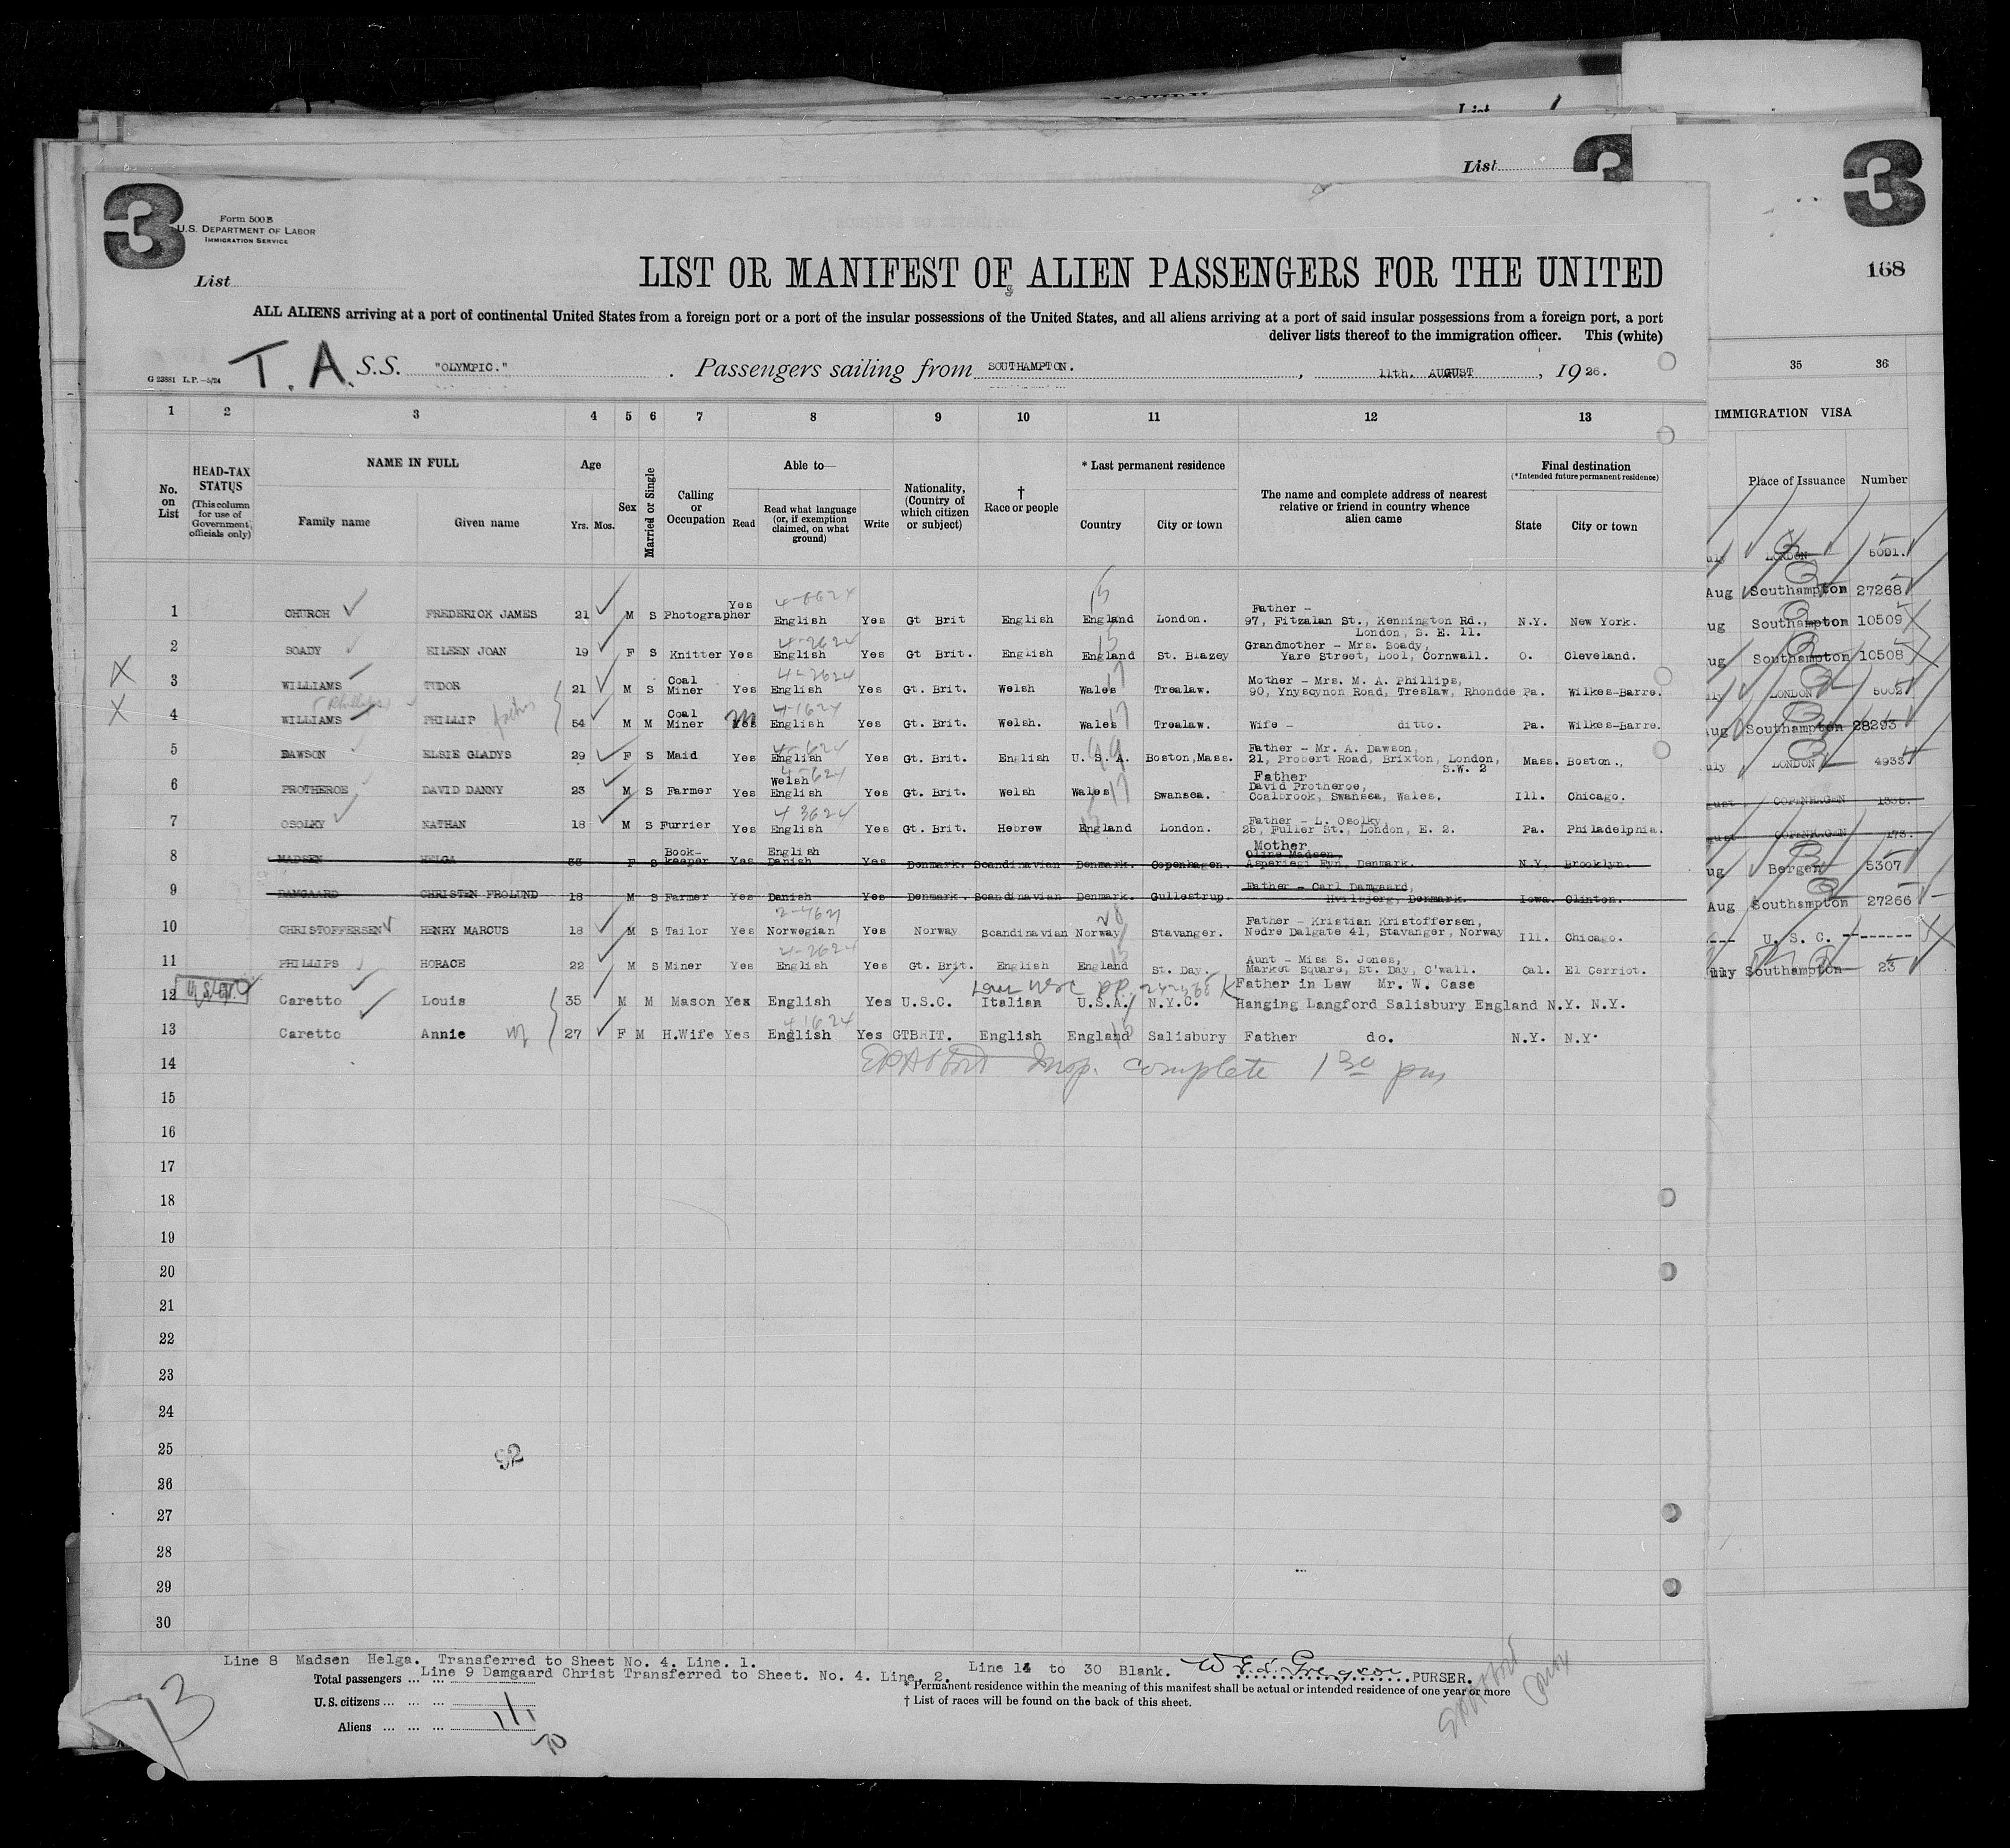 List
List
3
Form 500 B
U.S. DEPARTMENT OF LABOR
IMMIGRATION SERVICE
List
3
168
LIST OR MANIFEST OF ALIEN PASSENGERS FOR THE UNITED
ALL ALIENS arriving at a port of continental United States from a foreign port or a port of the insular possessions of the United States, and all aliens arriving at a port of said insular possessions from a foreign port, a port
deliver lists thereof to the immigration officer. This (white)
G 23881 L.P.—5/24
T. A. S.S. "OLYMPIC." . Passengers sailing from SOUTHAMPTON. , 11th. AUGUST , 1926.
1 2 3 4 5 6 7 8 9 10 11 12 13 35 36
IMMIGRATION VISA
No. on List
HEAD-TAX STATUS
(This column for use of Government officials only)
NAME IN FULL
Family name
Given name
Age
Yrs. Mos.
Sex
Married or Single
Calling or Occupation
Able to—
Read
Read what language (or, if exemption claimed, on what ground)
Write
Nationality, (Country of which citizen or subject)
† Race or people
* Last permanent residence
Country
City or town
The name and complete address of nearest relative or friend in country whence alien came
Final destination
(*Intended future permanent residence)
State
City or town
Place of Issuance
Number
1 CHURCH FREDERICK JAMES 21 M S Photographer Yes English Yes Gt Brit English England London. Father - 97, Fitzalan St., Kennington Rd., London, S. E. 11. N.Y. New York.
2 SOADY EILEEN JOAN 19 F S Knitter Yes English Yes Gt Brit. English England St. Blazey Grandmother - Mrs. Soady, Yare Street, Lool, Cornwall. O. Cleveland.
X 3 WILLIAMS TUDOR 21 M S Coal Miner Yes English Yes Gt. Brit. Welsh Wales Trealaw. Mother - Mrs. M. A. Phillips, 90, Ynyscynon Road, Treslaw, Rhondde Pa. Wilkes-Barre.
X 4 WILLIAMS (Phillips) PHILLIP father 54 M M Coal Miner Yes English Yes Gt. Brit. Welsh. Wales Trealaw. Wife - ditto. Pa. Wilkes-Barre.
5 DAWSON ELSIE GLADYS 29 F S Maid Yes English Yes Gt. Brit. English U. S. A. Boston,Mass. Father - Mr. A. Dawson, 21, Probert Road, Brixton, London, S.W. 2 Mass. Boston.,
6 PROTHEROE DAVID DANNY 23 M S Farmer Yes Welsh English Yes Gt. Brit. Welsh Wales Swansea. Father David Protheroe, Coalbrook, Swansea, Wales. Ill. Chicago.
7 OSOLKY NATHAN 18 M S Furrier Yes English Yes Gt. Brit. Hebrew England London. Father - L. Osolky, 25, Fuller St., London, E. 2. Pa. Philadelphia.
8 MADSEN HELGA 33 F S Book-keeper Yes English Danish Yes Denmark. Scandinavian Denmark. Copenhagen. Mother Oline Madsen, Asperiegi Fyn, Denmark. N.Y. Brooklyn.
9 DAMGAARD CHRISTEN FROLUND 18 M S Farmer Yes Danish Yes Denmark. Scandinavian Denmark. Gullestrup. Father - Carl Damgaard, Hvilsbjerg, Denmark. Iowa. Clinton.
10 CHRISTOFFERSEN HENRY MARCUS 18 M S Tailor Yes Norwegian Yes Norway Scandinavian Norway Stavanger. Father - Kristian Kristoffersen, Nedre Dalgate 41, Stavanger, Norway Ill. Chicago.
11 PHILLIPS HORACE 22 M S Miner Yes English Yes Gt. Brit. English England St. Day. Aunt - Miss S. Jones, Market Square, St. Day, C'wall. Cal. El Cerriot.
12 Caretto Louis 35 M M Mason Yes English Yes U.S.C. Italian U.S.A. N.Y.C. Father in Law Mr. W. Case Hanging Langford Salisbury England N.Y. N.Y.
13 Caretto Annie wf 27 F M H.Wife Yes English Yes GTBRIT. English England Salisbury Father do. N.Y. N.Y.
14
15
16
17
18
19
20
21
22
23
24
25
26
27
28
29
30
Insp. complete 1 30 pm
92
uly LONDON 5001.
Aug Southampton 27268
ug Southampton 10509
ug Southampton 10508
uly LONDON 5002
Aug Southampton 28293
uly LONDON 4933
gust COPENHAGEN
gust COPENHAGEN 173.
ug Bergen 5307
Aug Southampton 27266
U. S. C.
Southampton 23
Line 8 Madsen Helga. Transferred to Sheet No. 4. Line. 1.
Line 9 Damgaard Christ Transferred to Sheet. No. 4. Line. 2. Line 14 to 30 Blank. PURSER.
Total passengers ... ...
U.S. citizens ... ... ...
Aliens ... ... ...
* Permanent residence within the meaning of this manifest shall be actual or intended residence of one year or more
† List of races will be found on the back of this sheet.